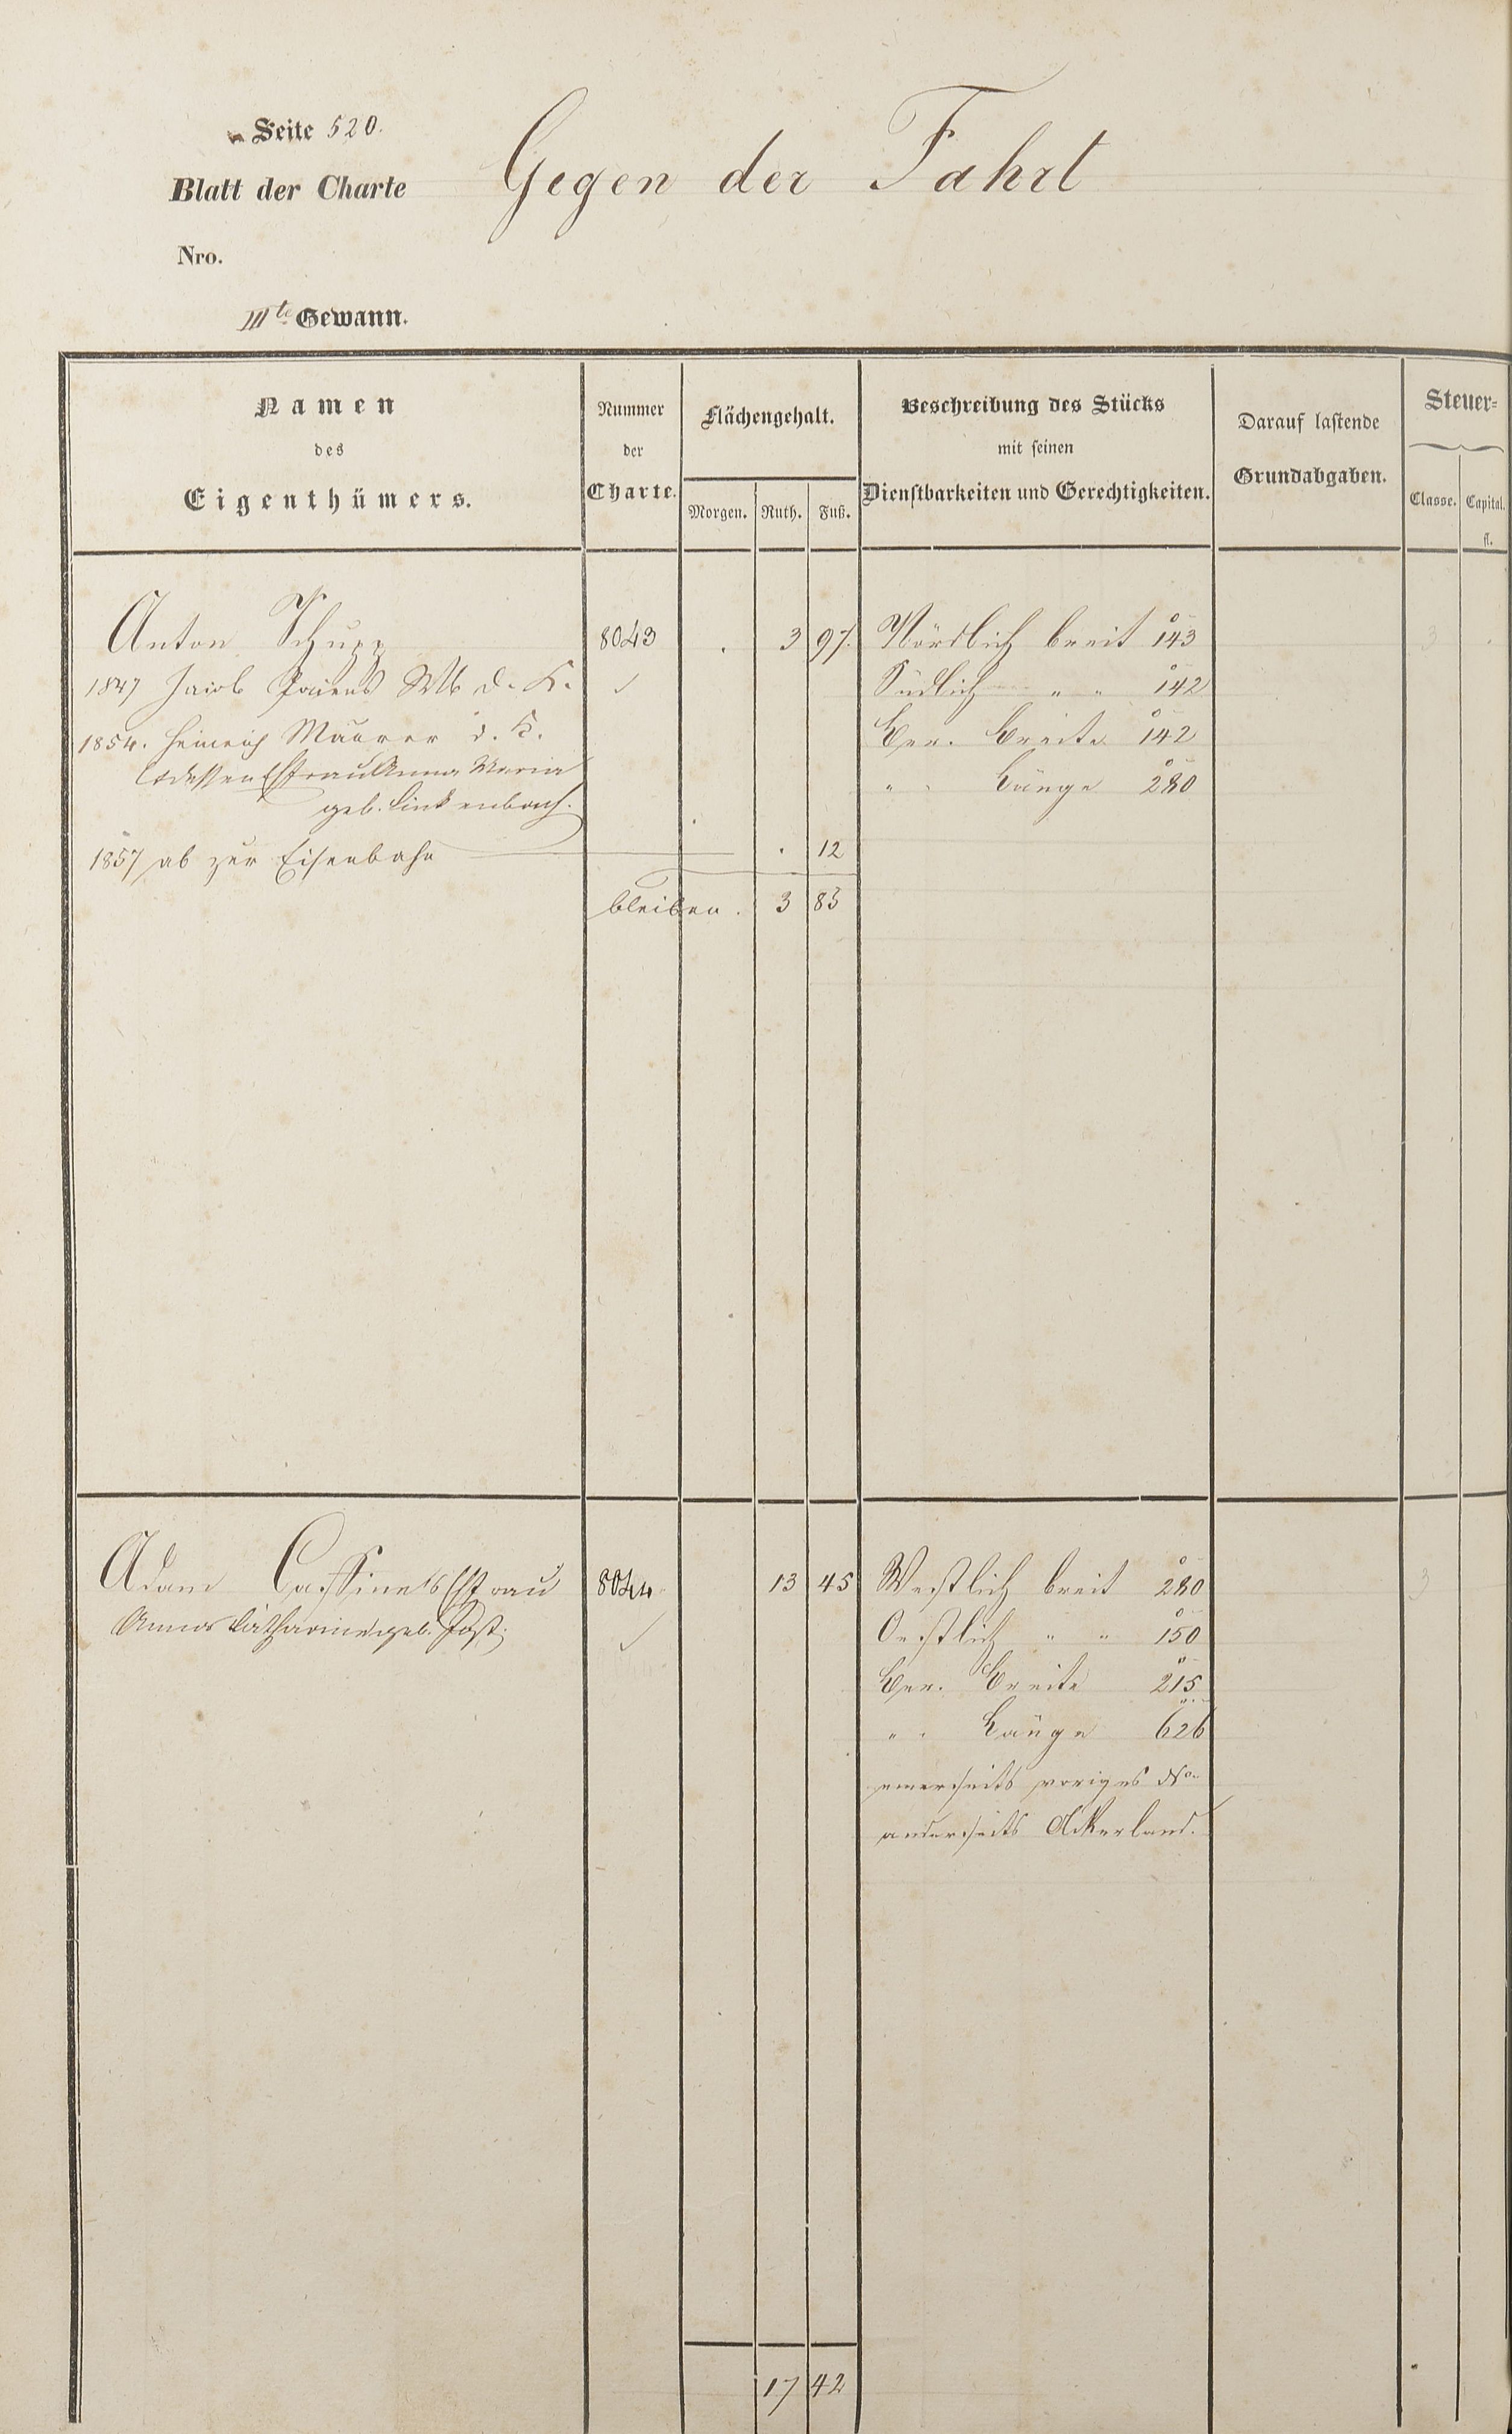 Seite 520.
Blatt der Charte
Gegen der Fahrt
Nro.
IIIte Gewann.
Namen
des
Eigenthümers.
Nummer
der
Charte.
Flächengehalt.
Morgen. Ruth. Fuß.
Beschreibung des Stücks
mit seinen
Dienstbarkeiten und Gerechtigkeiten.
Darauf lastende
Grundabgaben.
Steuer=
Classe. Capital.
fl.
Anton Schupp 8043 . 3 97. Nördlich breit 143 3
1847 Jacob d. K. Südlich " " 142
1854. Heinrich Maurer d. K. Ger. Breite 142
dessen Ehfrau Anna Maria
" " Länge 280
geb. Linkenbach.
1857 ab zur Eisenbahn . 12
bleiben . 3 85
Adam Cassinets Ehfrau 8044 13 45 Westlich breit 280 3
Anna Catharine geb. Post. Oestlich " " 150
Ger. Breite 215
" " Länge 626
einerseits voriges No
anderseits Ackerland.
17 42